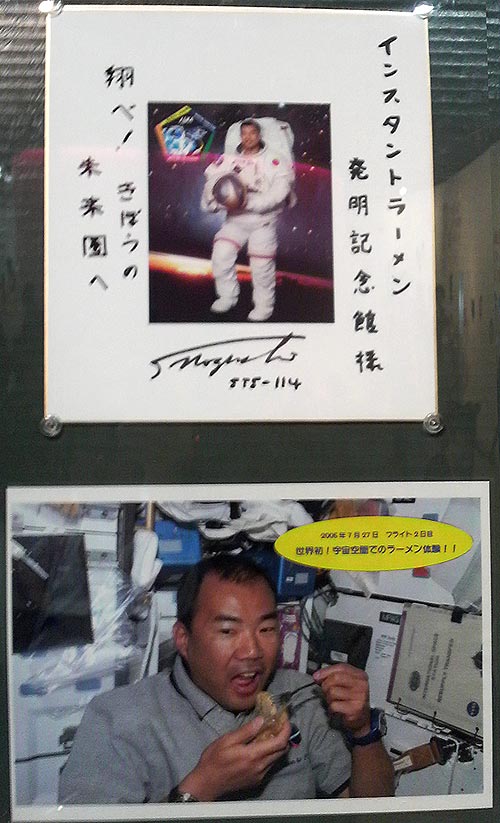 インスタントラーメン
発明記念館様
翔べ！きぼうの
未来圏へ
STS-114
2005年7月27日 フライト2日目
世界初！宇宙空間でのラーメン体験！！